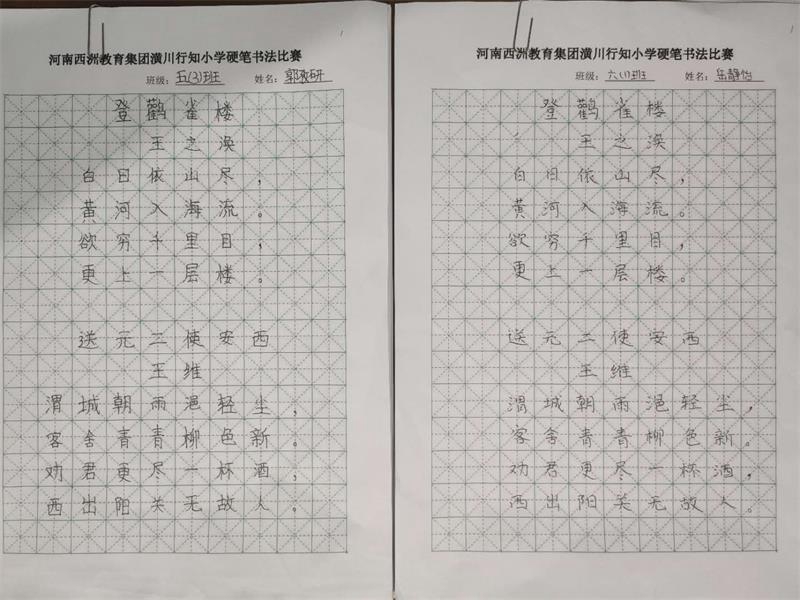 河南西洲教育集团潢川行知小学硬笔书法比赛
班级：五(3)班 姓名：
登鹳雀楼
王之涣
白日依山尽，
黄河入海流。
欲穷千里目，
更上一层楼。
送元二使安西
王维
渭城朝雨浥轻尘，
客舍青青柳色新。
劝君更尽一杯酒，
西出阳关无故人。
1
河南西洲教育集团潢川行知小学硬笔书法比赛
班级：六(1)班 姓名：岳静怡
登鹳雀楼
王之涣
白日依山尽，
黄河入海流。
欲穷千里目，
更上一层楼。
送元二使安西
王维
渭城朝雨浥轻尘，
客舍青青柳色新。
劝君更尽一杯酒，
西出阳关无故人。